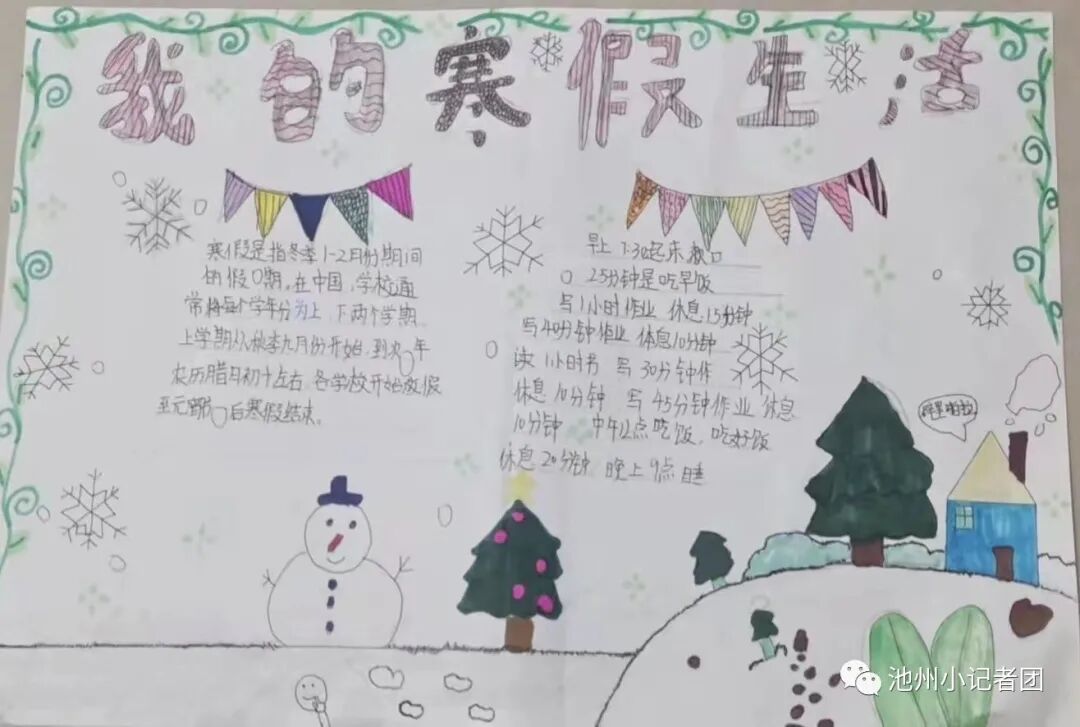 我的寒假生活
寒假是指冬季1-2月份期间
的假期。在中国,学校通
常将每个学年分为上、下两个学期
上学期从秋季九月份开始,到农年
农历腊月初十左右,各学校开始放假
至元宵后寒假结束。
早上7:30起床漱口
25分钟是吃早饭
写1小时作业 休息15分钟
写40分钟作业 休息10分钟
读1小时书 写30分钟作
休息10分钟 写45分钟作业 休息
10分钟 中午12点吃饭,吃好饭
休息20分钟 晚上9点睡
池州小记者团